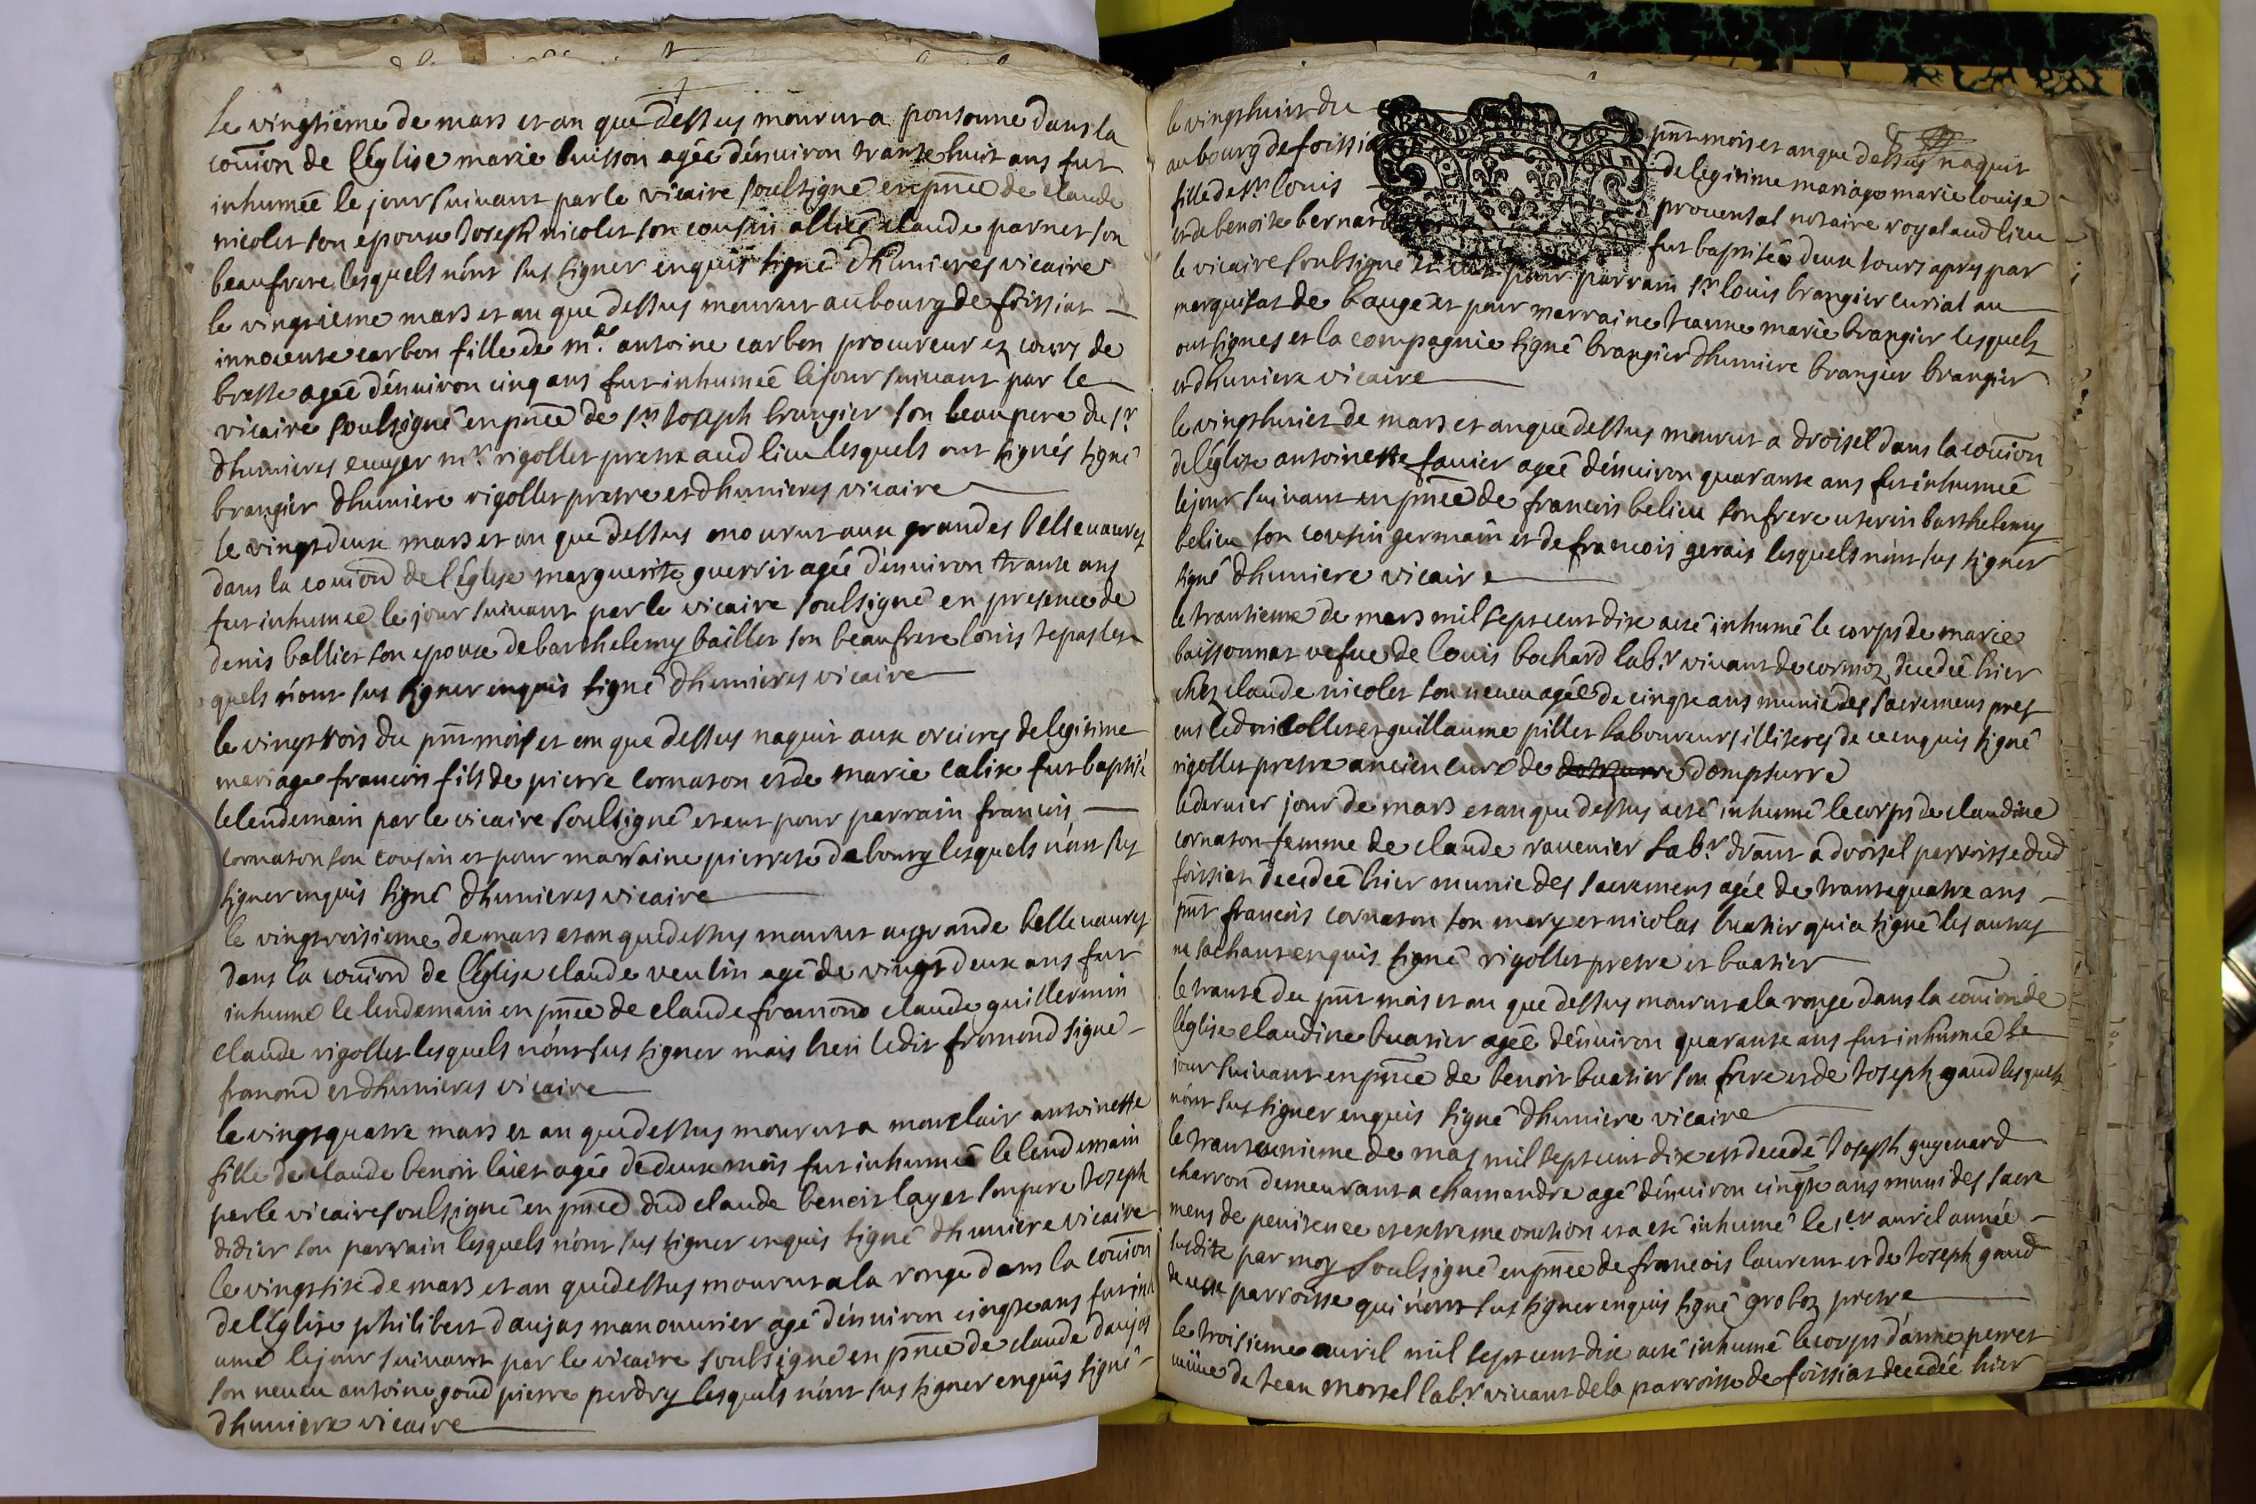 le vingtieme de mars et an que dessus mourut a ponsonne dans la
comion de l'église marie buisson agée d'enuiron trante huit ans fut
inhumeé le jour suiuant par le vicaire soubsigné en pnce de claude
nicolet son epoux Joseph nicolet son cousin allié claude parnet son
beaufrere lesquels n'ont sus signer enquis signé dhumieres vicaire
le vingtieme mars et an que dessus mourut au bourg de foissiat
innocente carbon fille de me antoine carbon procureur ez cours de
bresse agée d'enuiron cinq ans fut inhumeé le jour suiuant par le
vicaire soubsigné en pnce de sr Joseph brangier son beaupere du sr
dhumieres ecuyer mr rigollet pretre aud lieu lesquels ont signés signé
brangier dhumiere rigollet pretre et dhumieres vicaire
le vingtdeux mars et an que dessus mourut aux grandes belleuaures
dans la comion de l'église marguerite guerrit agée d'enuiron trante ans
fut inhumee le jour suiuant par le vicaire soubsigné en presence de
denis ballier son epoux de barthelemy baillet son beaufrere louis les
quels n'ont sus signer enquis signé dhumieres vicaire
le vingt trois du pnt mois et an que dessus naquit aux orcieres de legitime
mariage francois fils de pierre cornaton et de marie calix fut baptisé
le lendemain par le vicaire soubsigné et eut pour parrain francois
cornaton son cousin et pour marraine pierrete dabourg lesquels n'ont sus
signer enquis signé dhumieres vicaire
le vingtroisieme de mars et an que dessus mourut au grande belleuaures
dans la comion de l'église claude veulin agé de vingt deux ans fut
inhumé le lendemain en pnce de claude fromond claude guillermin
claude rigollet lesquels n'ont sus signer mais bien ledit fromond signé
fromond et dhumieres vicaire
le vingtquatre mars et an que dessus mourut a monclair antoinette
fille de claude benoit laiet agée de deux mois fut inhumeé le lendemain
par le vicaire soubsigné en pnce dud claude benoit layet son pere Joseph
didier son parrain lesquels n'ont sus signer enquis signé dhumiere vicaire
le vingtsix de mars et an que dessus mourut a la ronge dans la comion
de l'église philibert daujas manouurier agé d'enuiron cinqte ans fut inh
umé le jour suiuant par le vicaire soubsigné en pnce de claude daujas
son neueu antoine goud pierre perdry lesquels n'ont sus signer enquis signé
dhumiere vicaire
le vingthuit du pnt mois et an que dessus naquit
au bourg de foissia de legitime mariage marie louise
fille de sr louis prouensal notaire royal aud lieu
et de benoite bernard fut baptisée deux jours apres par
le vicaire soubsigné et eut pour parrain sr louis brangier curial au
marquisat de baugé et pour marraine Jeanne marie brangier lesquels
ont signes et la compagnie signé brangier dhumiere brangier brangier
et dhumiere vicaire
le vingthuiet de mars et an que dessus mourut a droisel dans la comion
de l'église antoinette fauier agée d'enuiron quarante ans fut inhumeé
le jour suiuant en pnce de francois belieu son frere uterin barthelemy
belieu son cousin germain et de francois gerais lesquels n'ont sus signer
signé dhumiere vicaire
le trantieme de mars mil sept cent dix a eté inhumé le corps de marie
buissonnat vefue de louis bochard labr viuant de cormoz decedée hier
chez claude nicolet son neueu agée de cinqte ans munie des sacremens pres
ens led nicollet et guillaume pillet laboureurs illiteres de ce enquis signé
rigollet pretre ancien curé de dompsurre
le dernier jour de mars et an que dessus a eté inhumé le corps de claudine
cornaton femme de claude rauenier labr drant a droisel parroisse dud
foissiat decedeé hier munie des sacremens agée de trantequatre ans
pnt francois cornaton son mary et nicolas buatier qui a signé les autres
ne sachant enquis signé rigollet pretre et buatier
le trante du pnt mois et an que dessus mourut a la ronge dans la comion de
l'église claudine buatier agée d'enuiron quarante ans fut inhumeé le
jour suiuant en pnce de benoit buatier son frere et de Joseph gaud lesquels
n'ont sus signer enquis signé dhumiere vicaire
le trante unieme de mas mil sept cent dix est decedé Joseph guyenard
charron demeurant a chamandre agé d'enuiron cinqte ans muni des sacre
mens de penitence et extreme onction et a eté inhumé le 1er auril année
susdite par moy soubsigné en pnce de francois laurent et de Joseph gaud
de cette parroisse qui n'ont sus signer enquis signé groboz pretre
le troisieme auril mil sept cent dix a eté inhumé le corps d'anne perret
veüue de Jean morsel labr viuant de la parroisse de foissiat decedée hier